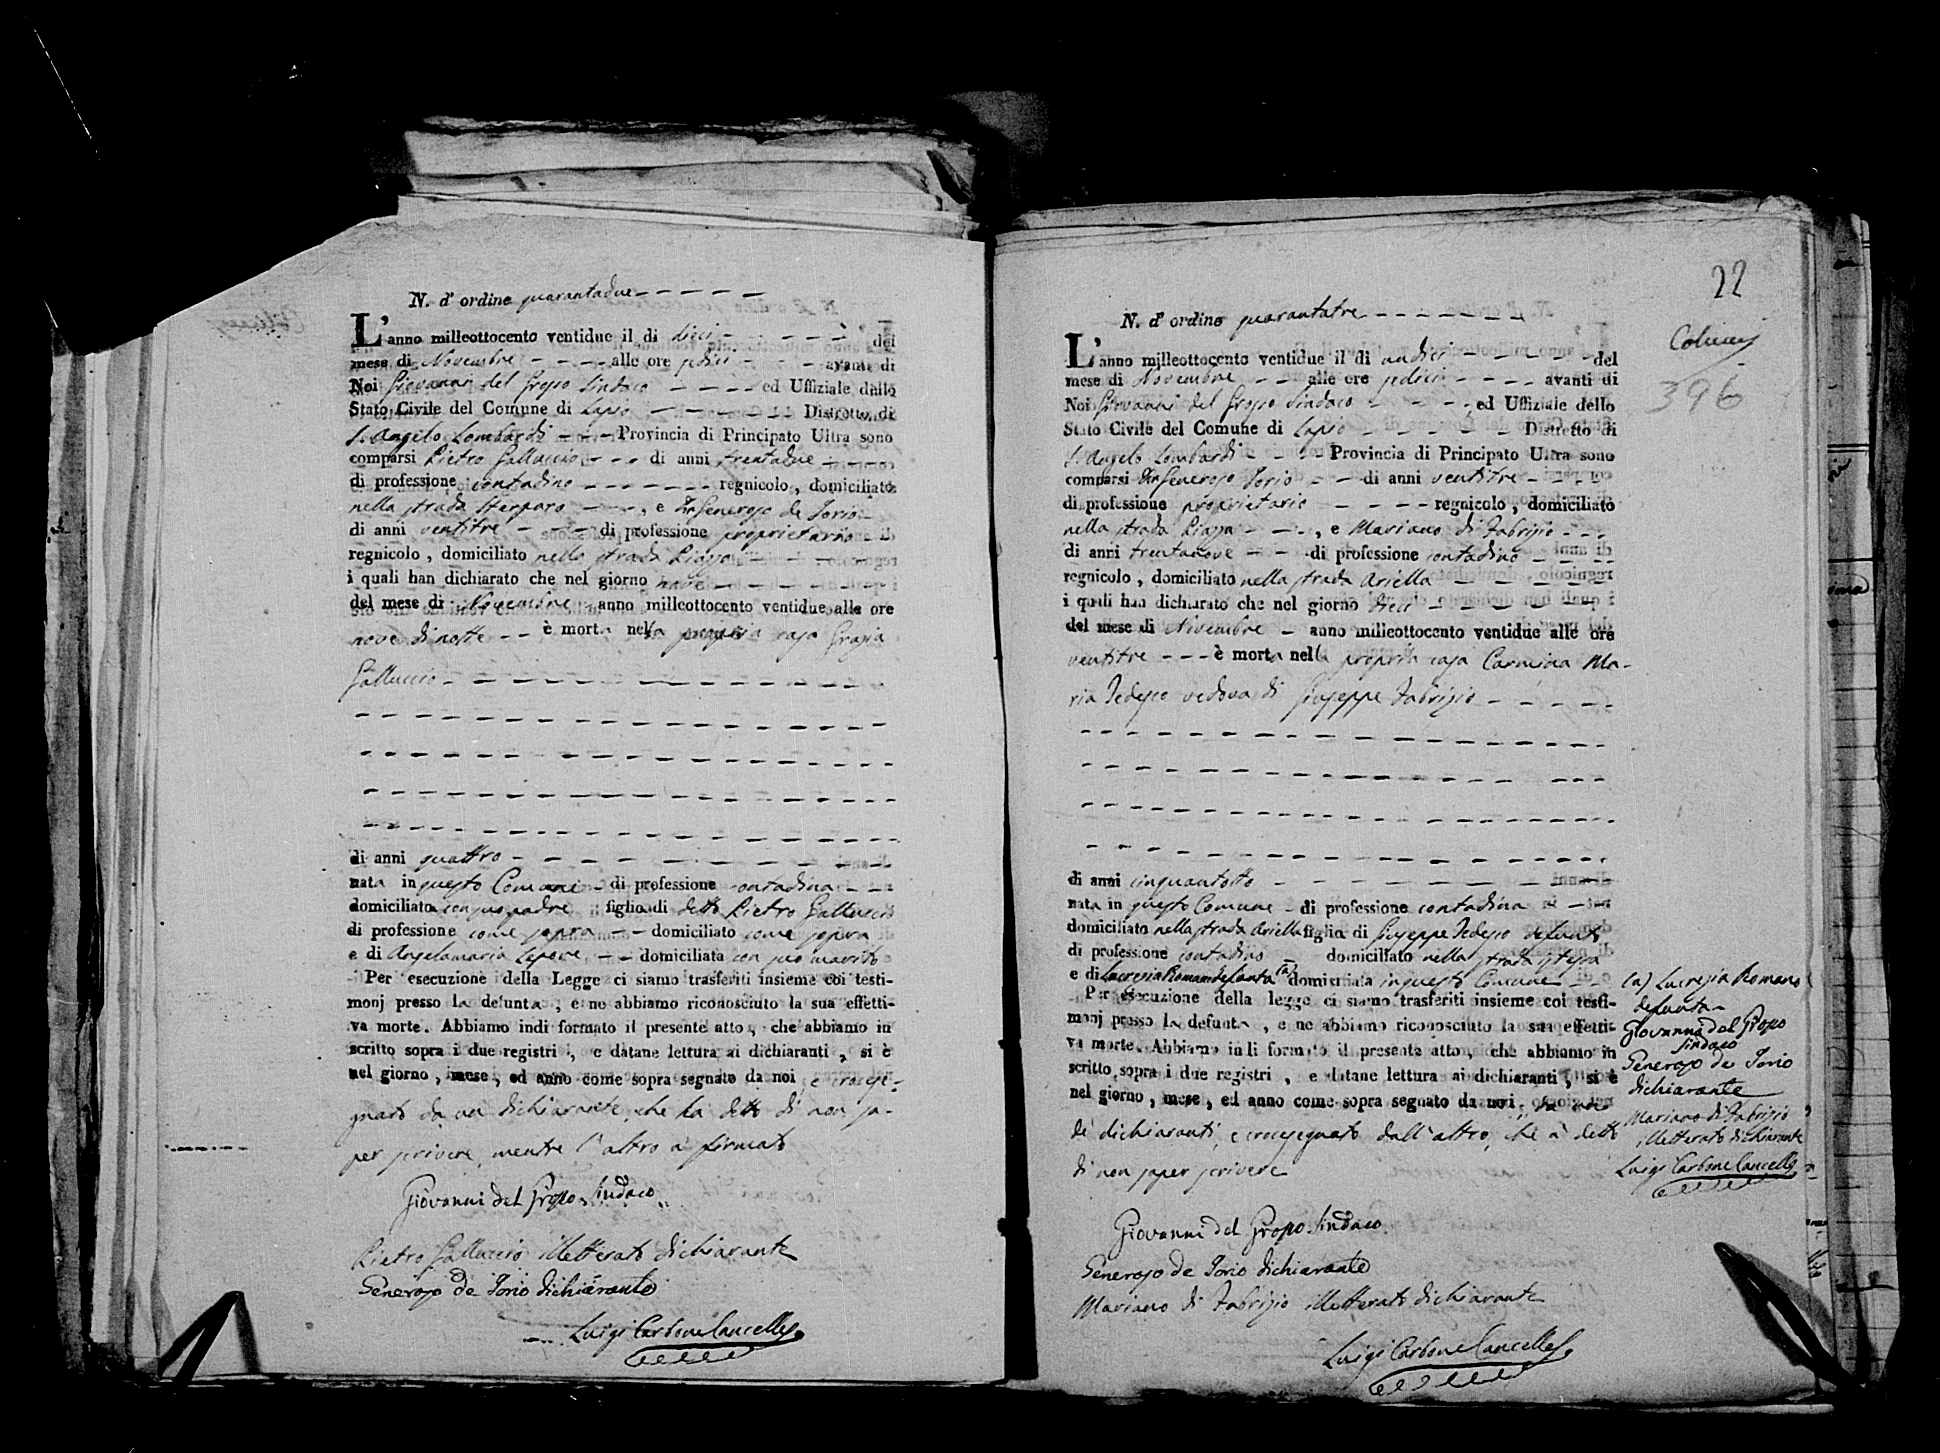 N. d' ordine quarantadue
L' anno milleottocento ventidue il di dieci del
mese di Novembre alle ore sedici avanti di
Noi Giovanni del Grosso Sindaco ed Uffiziale dello
Stato Civile del Comune di Lapio Distretto di
S. Angelo Lombardi Provincia di Principato Ultra sono
comparsi Pietro Galluccio di anni trentadue
di professione contadino regnicolo, domiciliato
nella strada Sterparo, e D. Generoso de Iorio
di anni ventitre di professione proprietario
regnicolo, domiciliato nella strada Piazza
i quali han dichiarato che nel giorno nove
del mese di Novembre anno milleottocento ventidue alle ore
nove di notte è morta nella propria casa Grazia
Galluccio
di anni quattro
nata in questo Comune di professione contadina
domiciliata con suo padre figlia di detto Pietro Galluccio
di professione come sopra domiciliato come sopra
e di Angelamaria Lepore domiciliata con suo marito
Per esecuzione della Legge ci siamo trasferiti insieme coi testi-
monj presso la defunta, e ne abbiamo riconosciuto la sua effetti-
va morte. Abbiamo indi formato il presente atto, che abbiamo in
scritto sopra i due registri, e datane lettura ai dichiaranti, si è
nel giorno, mese, ed anno come sopra segnato da noi, e crocesi-
gnato da un dichiarante, che ha detto di non sa-
per scrivere, mentre l'altro à firmato
Giovanni del Grosso Sindaco
Pietro Galluccio illetterato dichiarante
Generoso de Iorio dichiarante
Luigi Carbone Cancelle
22
Colucci
396
N. d' ordine quarantatre
L' anno milleottocento ventidue il di undici del
mese di Novembre alle ore sedici avanti di
Noi Giovanni del Grosso Sindaco ed Uffiziale dello
Stato Civile del Comune di Lapio Distretto di
S. Angelo Lombardi Provincia di Principato Ultra sono
comparsi D. Generoso Iorio di anni ventitre
di professione proprietario regnicolo, domiciliato
nella strada Piazza, e Mariano di Fabrizio
di anni trentanove di professione contadino
regnicolo, domiciliato nella strada Ariella
i quali han dichiarato che nel giorno dieci
del mese di Novembre anno milleottocento ventidue alle ore
ventitre è morta nella propria casa Carmina Ma-
ria Tedesco vedova di Giuseppe Fabrizio
di anni cinquantotto
nata in questo Comune di professione contadina
domiciliato nella strada Ariella figlia di Giuseppe Tedesco defunto
di professione contadino domiciliato nella strada stessa
e di Lucrezia Romano defunta (a) domiciliata in questo Comune
Per esecuzione della legge ci siamo trasferiti insieme coi testi-
monj presso la defunta, e ne abbiamo riconosciuto la sua effetti-
va morte. Abbiamo indi formato il presente atto, che abbiamo in
scritto sopra i due registri, e datane lettura ai dichiaranti, si è
nel giorno, mese, ed anno come sopra segnato da noi, da uno
de' dichiaranti, e crocesegnato dall'altro, che à detto
di non saper scrivere
Giovanni del Grosso Sindaco
Generoso de Iorio dichiarante
Mariano di Fabrizio illetterato dichiarante
Luigi Carbone Cancelle
(a) Lucrezia Romano
defunta
Giovanni del Grosso
Sindaco
Generoso de Iorio
dichiarante
Mariano di Fabrizio
illetterato dichiarante
Luigi Carbone Cancelle